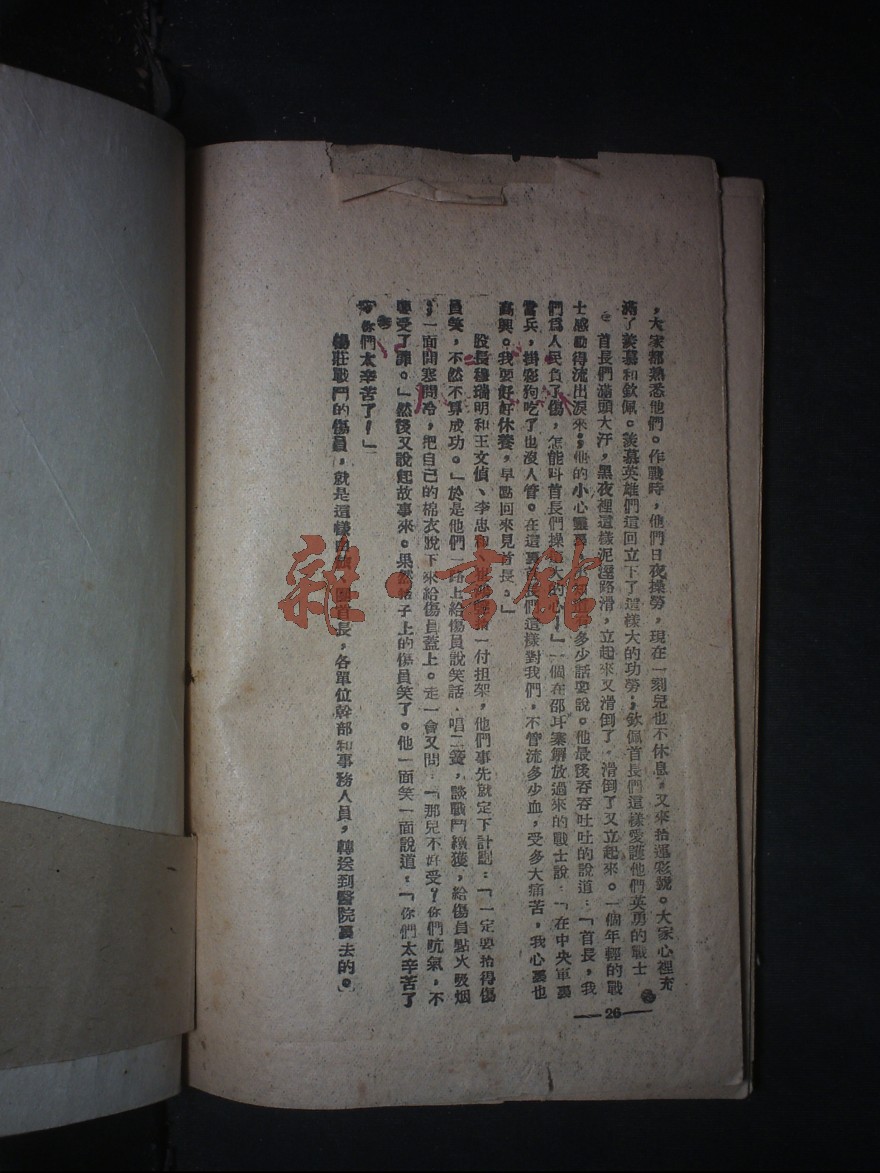 ，大家都熟悉他們。作戰時，他們日夜操勞，現在一刻兒也不休息，又來抬運彩號。大家心裡充
滿了羨慕和欽佩。羨慕英雄們這回立下了這樣大的功勞；欽佩首長們這樣愛護他們英勇的戰士
。首長們滿頭大汗，黑夜裡這樣泥濘路滑，立起來又滑倒了，滑倒了又立起來。一個年輕的戰
士感動得流出淚來；他的小心靈裏，不知道有多少話要說。他最後吞吞吐吐的說道：「首長，我
們爲人民負了傷，怎能叫首長們操這大的心！」一個在邵耳寨解放過來的戰士說：「在中央軍裏
當兵，掛彩狗吃了也沒人管。在這裏首長們這樣對我們，不管流多少血，受多大痛苦，我心裏也
高興。我要好好休養，早點回來見首長。」
股長 瑞明和王文偵、李忠和 抬一付担架，他們事先就定下計劃：「一定要抬得傷
員笑，不然不算成功。」於是他們一路上給傷員說笑話，唱二簧，談戰鬥繳獲，給傷員點火吸烟
；一面問寒問冷，把自己的棉衣脫下來給傷員蓋上。走一會又問：「那兒不好受？你們吭氣，不
要受了罪。」然後又說起故事來。果然 子上的傷員笑了。他一面笑一面說道：「你們太辛苦了
，你們太辛苦了！」
楊莊戰鬥的傷員，就是這樣由 團首長，各單位幹部和事務人員，轉送到醫院裏去的。
26
雜·書館